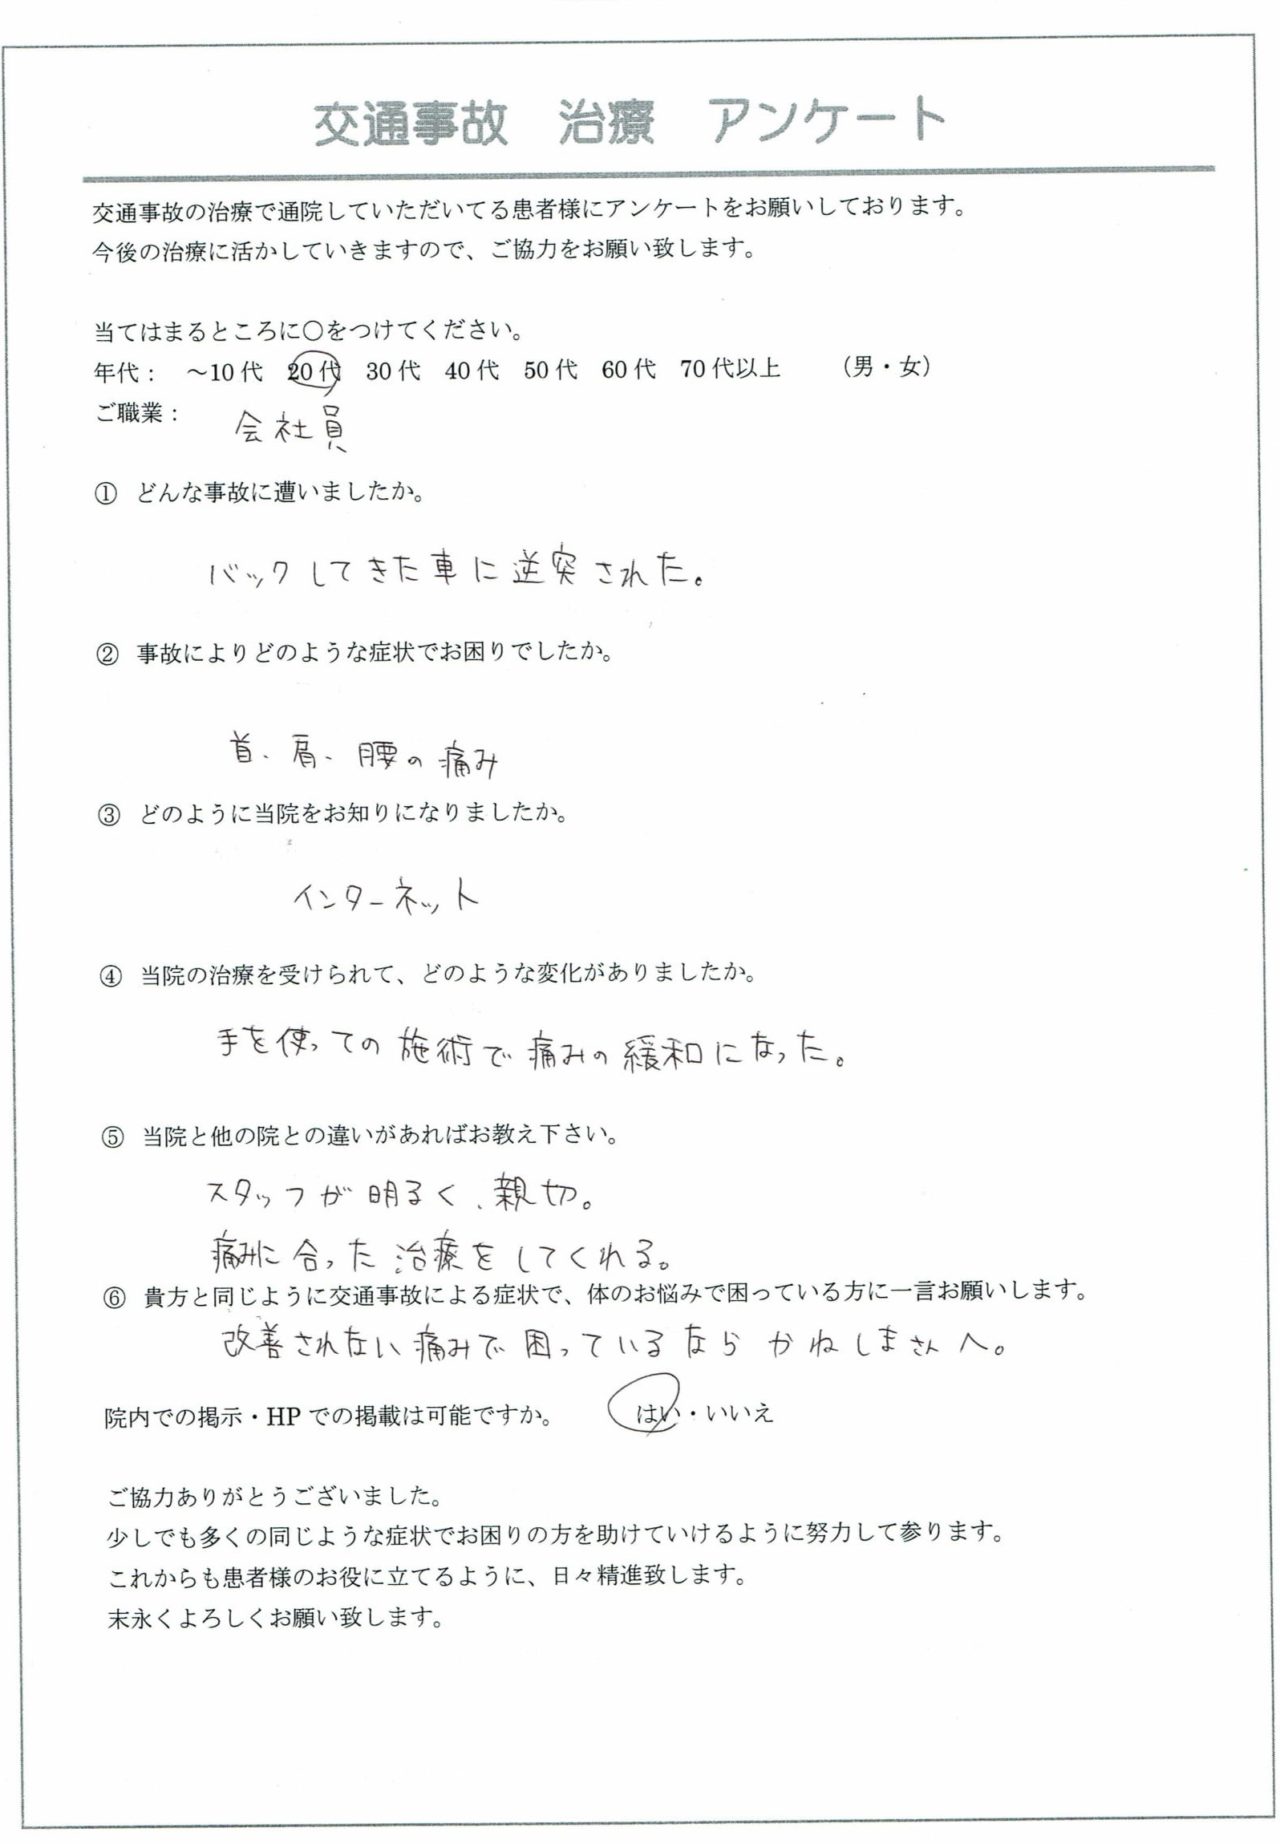 交通事故　治療　アンケート
交通事故の治療で通院していただいてる患者様にアンケートをお願いしております。
今後の治療に活かしていきますので、ご協力をお願い致します。
当てはまるところに〇をつけてください。
年代：　～10代　20代　30代　40代　50代　60代　70代以上　　（男・女）
ご職業：　会社員
① どんな事故に遭いましたか。
バックしてきた車に逆突された。
② 事故によりどのような症状でお困りでしたか。
首、肩、腰の痛み
③ どのように当院をお知りになりましたか。
インターネット
④ 当院の治療を受けられて、どのような変化がありましたか。
手を使っての施術で痛みの緩和になった。
⑤ 当院と他の院との違いがあればお教え下さい。
スタッフが明るく、親切。
痛みに合った治療をしてくれる。
⑥ 貴方と同じように交通事故による症状で、体のお悩みで困っている方に一言お願いします。
改善されない痛みで困っているならかねしまさんへ。
院内での掲示・HPでの掲載は可能ですか。　　はい・いいえ
ご協力ありがとうございました。
少しでも多くの同じような症状でお困りの方を助けていけるように努力して参ります。
これからも患者様のお役に立てるように、日々精進致します。
末永くよろしくお願い致します。